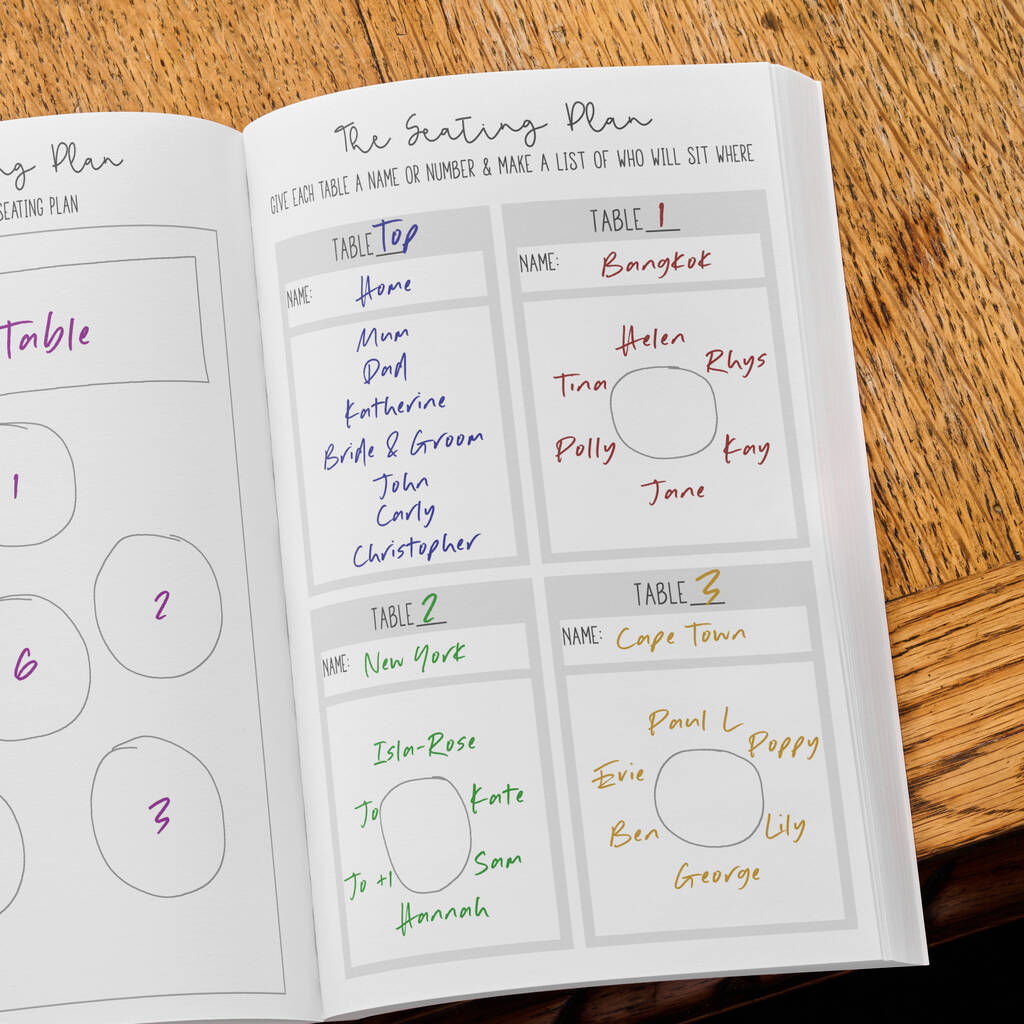 ng Plan
SEATING PLAN
Table
1
2
6
3
The Seating Plan
GIVE EACH TABLE A NAME OR NUMBER & MAKE A LIST OF WHO WILL SIT WHERE
TABLE TOP
NAME: Home
Mum
Dad
Katherine
Bride & Groom
John
Carly
Christopher
TABLE 1
NAME: Bangkok
Helen
Rhys
Tina
Polly
Kay
Jane
TABLE 2
NAME: New York
Isla-Rose
Jo
Kate
Jo +1
Sam
Hannah
TABLE 3
NAME: Cape Town
Paul L
Poppy
Evie
Ben
Lily
George